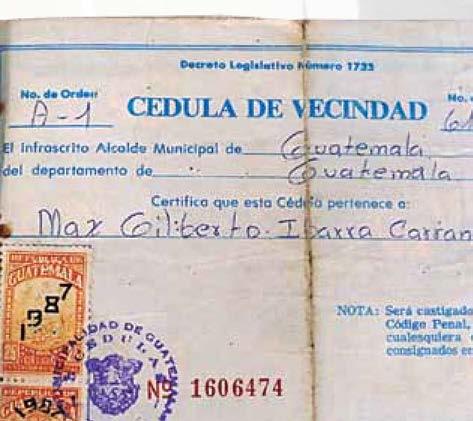 Decreto Legislativo Número 1735
No. de Orden
A-1
CEDULA DE VECINDAD
No.
61
El infrascrito Alcalde Municipal de Guatemala
del departamento de Guatemala
Certifica que esta Cédula pertenece a:
Max Giliberto Ibarra Carran
REPUBLICA DE
GUATEMALA
1987
25
MUNICIPALIDAD DE GUATEMALA
CEDULAS
NOTA: Será castigado
Código Penal,
cualesquiera
consignados en
Nº 1606474